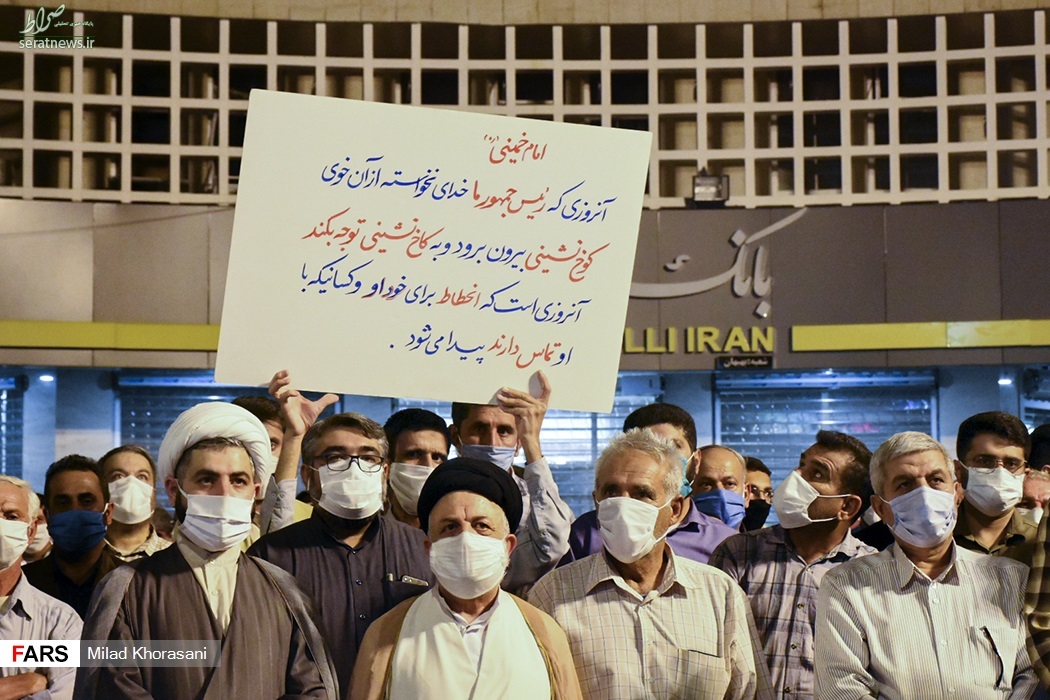 صراط
پایگاه خبری تحلیلی
seratnews.ir
امام خمینی(ره)
آنروزی که رئیس جمهور ما خدای نخواسته از آن خوی
کوخ نشینی بیرون برود و به کاخ نشینی توجه بکند
آنروزی است که انحطاط برای خود او و کسانیکه با
او تماس دارند پیدا می شود .
بانک ملی
LLI IRAN
FARS Milad Khorasani